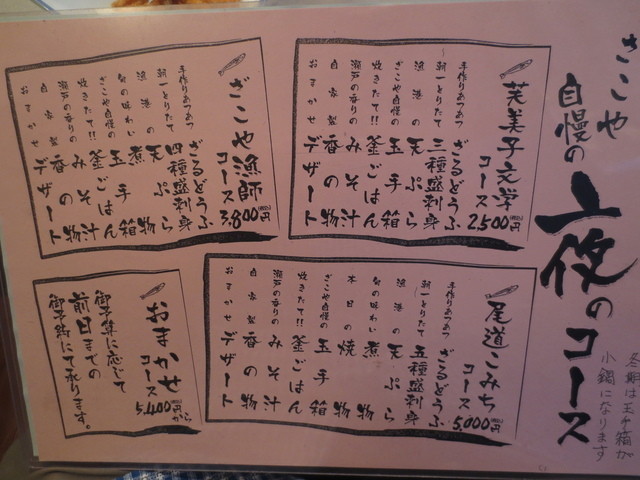 ざこや
自慢の
夜のコース
冬期は玉手箱が
小鍋になります
芙美子文学
コース 2,500円(税込)
手作りあつあつ ざるどうふ
朝一とりたて 三種盛刺身
漁港の 天ぷら
ざこや自慢の 玉手箱
炊きたて!! 釜ごはん
瀬戸の香りの みそ汁
自家製 香の物
おまかせ デザート
ざこや漁師
コース 3,800円(税込)
手作りあつあつ ざるどうふ
朝一とりたて 四種盛刺身
漁港の 天ぷら
旬の味わい 煮物
ざこや自慢の 玉手箱
炊きたて!! 釜ごはん
瀬戸の香りの みそ汁
自家製 香の物
おまかせ デザート
尾道こみち
コース 5,000円(税込)
手作りあつあつ ざるどうふ
朝一とりたて 五種盛刺身
漁港の 天ぷら
旬の味わい 煮物
本日の 焼物
ざこや自慢の 玉手箱
炊きたて!! 釜ごはん
瀬戸の香りの みそ汁
自家製 香の物
おまかせ デザート
おまかせ
コース 5,400円(税込)から
御予算に応じて
前日までの
御予約にて承ります。